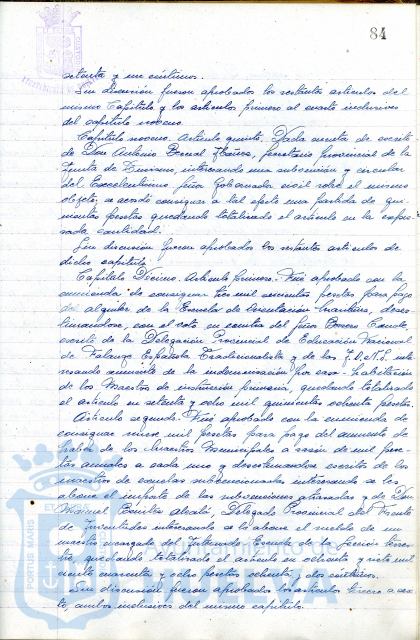 84
setenta y un céntimos.
Sin discusión fueron aprobados los restantes artículos del
mismo Capítulo y los artículos primero al cuarto inclusives
del capítulo noveno.
Capítulo noveno. Artículo quinto. Dada cuenta de escrito
de Don Antonio Bernal Ibáñez, Secretario provincial de la
Junta de Turismo, interesando una subvención y circular
del Excelentísimo Señor Gobernador civil sobre el mismo
objeto, se acordó consignar a tal efecto una partida de qui-
nientas pesetas quedando totalizado el artículo en la expre-
sada cantidad.
Sin discusión fueron aprobados los restantes artículos de
dicho capítulo.
Capítulo Décimo. Artículo primero. Fué aprobado con la
enmienda de consignar tres mil pesetas para pago
del alquiler de la Escuela de Orientación Marítima, deses-
timándose, con el voto en contra del Señor
escrito de la Delegación Provincial de Educación Nacional
de Falange Española Tradicionalista y de las J.O.N.S. inte-
resando aumento de la indemnización por casa-habitación
de los Maestros de instrucción primaria, quedando totalizado
el artículo en setenta y ocho mil quinientas ochenta pesetas.
Artículo segundo. Fué aprobado con la enmienda de
consignar cinco mil pesetas para pago del aumento de
haber de los Maestros Municipales a razón de mil pese-
tas anuales a cada uno y desestimándose escritos de los
maestros de escuelas subvencionadas interesando se les
abone el importe de las subvenciones atrasadas y de D.
Manuel, Delegado Provincial del Frente
de Juventudes interesando se le abone el sueldo de un
maestro encargado del Internado Escuela de la Sección
quedando totalizado el artículo en ochenta y siete mil
ciento cuarenta y ocho pesetas ochenta y dos céntimos.
Sin discusión fueron aprobados los artículos tercero a sex-
to, ambos inclusives del mismo capítulo.
PORTUS MARIS
Ayuntamiento de